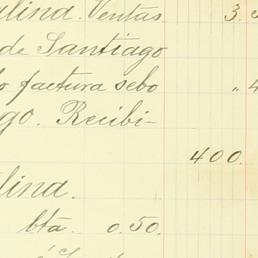 lina. Ventas 3.
de Santiago
factura sebo "4
go. Recibi-
400.
lina.
bta. 0.50.